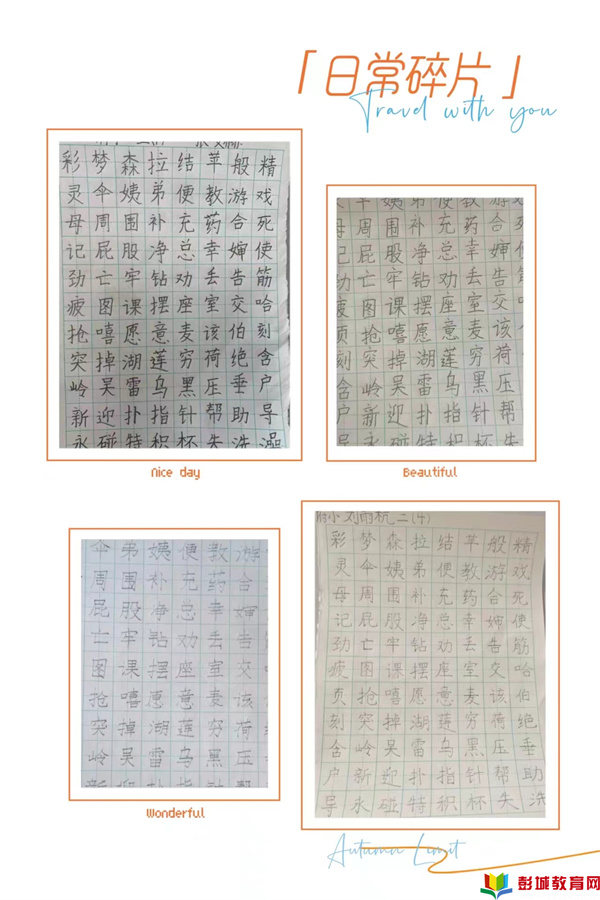 「日常碎片」
Travel with you
彩梦森拉结苹般精
灵伞姨弟便教游戏
母周围补充药合死
记屁股净总幸婶使
劲亡牢钻劝丢告筋
疲图课摆座室交哈
抢嘻愿意麦该伯刻
突掉湖莲穷荷绝含
岭吴雷乌黑压垂户
新迎扑指针帮助导
永碰特积杯失洗澡
Nice day
伞姨弟便教游
母周围补充药合
记屁股净总幸婶
劲亡牢钻劝丢告
疲图课摆座室交
页抢嘻愿意麦该
刻突掉湖莲穷荷
含岭吴雷乌黑压
户新迎扑指针帮
导永碰特积杯失
Beautiful
伞弟姨便教游
周围补充药合
屁股净总幸婶
亡牢钻劝丢告
图课摆座室交
抢嘻愿意麦该
突掉湖莲穷荷
岭吴雷乌黑压
新迎扑指针帮
Wonderful
附小刘雨杭二(4)
彩梦森拉结苹般精
灵伞姨弟便教游戏
母周围补充药合死
记屁股净总幸婶使
劲亡牢钻劝丢告筋
疲图课摆座室交哈
页抢嘻愿意麦该伯
刻突掉湖莲穷荷绝
含岭吴雷乌黑压垂
户新迎扑指针帮助
导永碰特积杯失洗
Autumn Limit
彭城教育网